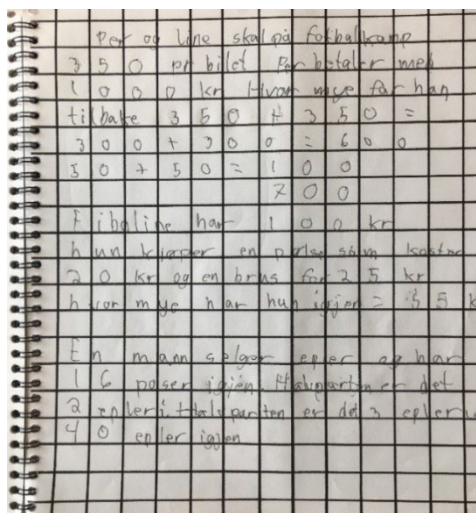 Per og line skal på fotballkamp
350 pr bilet Per betaler med
1000 kr Hvor mye får han
tilbake 350 + 350 =
300 + 300 = 600
50 + 50 = 100
700
har 100 kr
hun kjøper en pølse som koster
20 kr og en brus for 25 kr
hvor mye har hun igjen = 55 k
En mann selger epler og har
16 poser igjen. Halvparten er det
2 epler i. Halvparten er det 3 epler
40 epler igjen